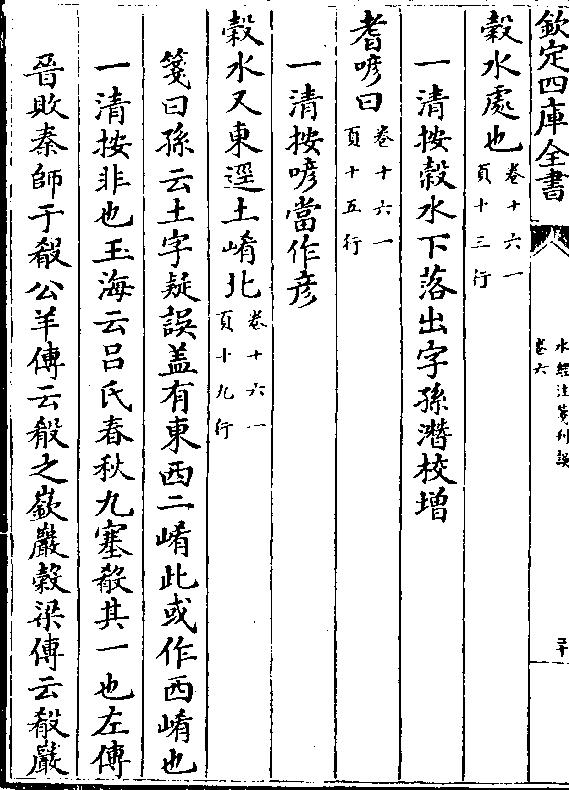 欽定四庫全書
水經注箋刊誤
卷六
二十
穀水處也卷十六一頁十三行
一清按穀水下落出字孫潛校增
耆喭曰卷十六一頁十五行
一清按喭當作彦
穀水又東逕土崤北卷十六一頁十九行
箋曰孫云土字疑誤盖有東西二崤此或作西崤也
一清按非也玉海云吕氏春秋九塞殽其一也左傳
晉敗秦師于殽公羊傳云殽之嶔巖穀梁傳云殽巖